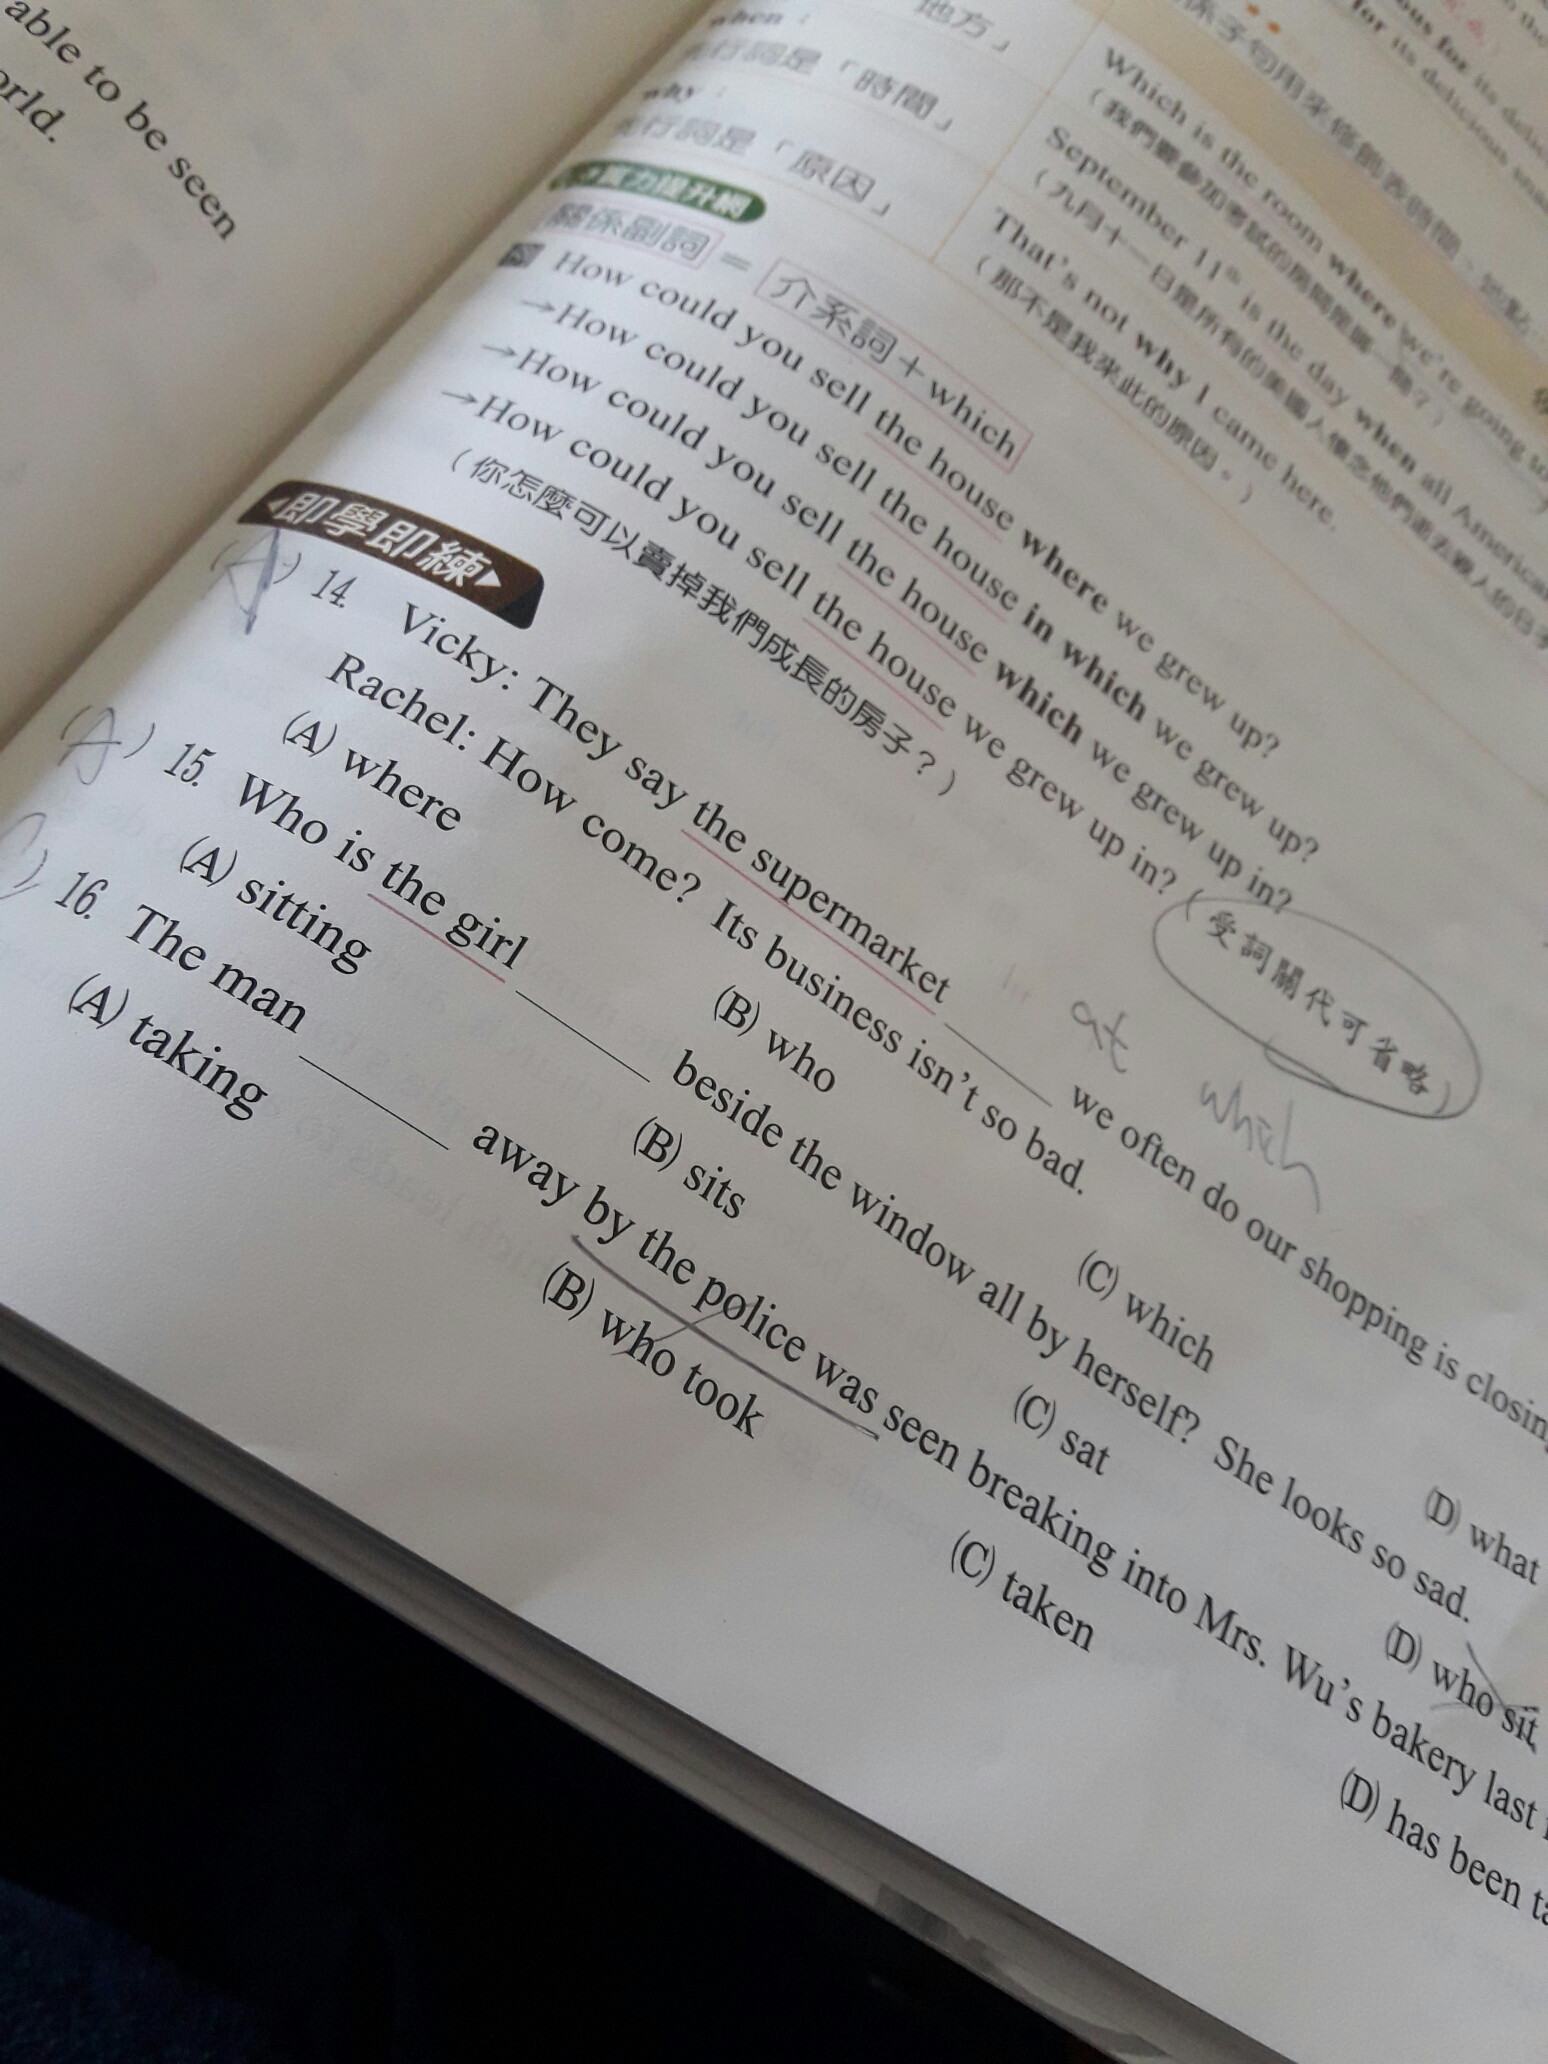 able to be seen
orld.
when：
地方」
行詞是「時間」
why：
先行詞是「原因」
係子句用來修飾表時間、地點
for its delicious
Which is the room where we're going to
（我們要參加考試的房間是哪一間？）
September 11th is the day when all American
（九月十一日是所有的美國人懷念他們逝去親人的日子
That's not why I came here.
（那不是我來此的原因。）
實力提升網
關係副詞＝介系詞＋which
How could you sell the house where we grew up?
→How could you sell the house in which we grew up?
→How could you sell the house which we grew up in?
→How could you sell the house we grew up in?（受詞關代可省略）
（你怎麼可以賣掉我們成長的房子？）
即學即練
(A) 14. Vicky: They say the supermarket ______ we often do our shopping is closing
at which
Rachel: How come? Its business isn't so bad.
(A) where (B) who (C) which (D) what
(A) 15. Who is the girl ______ beside the window all by herself? She looks so sad.
(A) sitting (B) sits (C) sat (D) who sit
) 16. The man ______ away by the police was seen breaking into Mrs. Wu's bakery last
(A) taking (B) who took (C) taken (D) has been ta